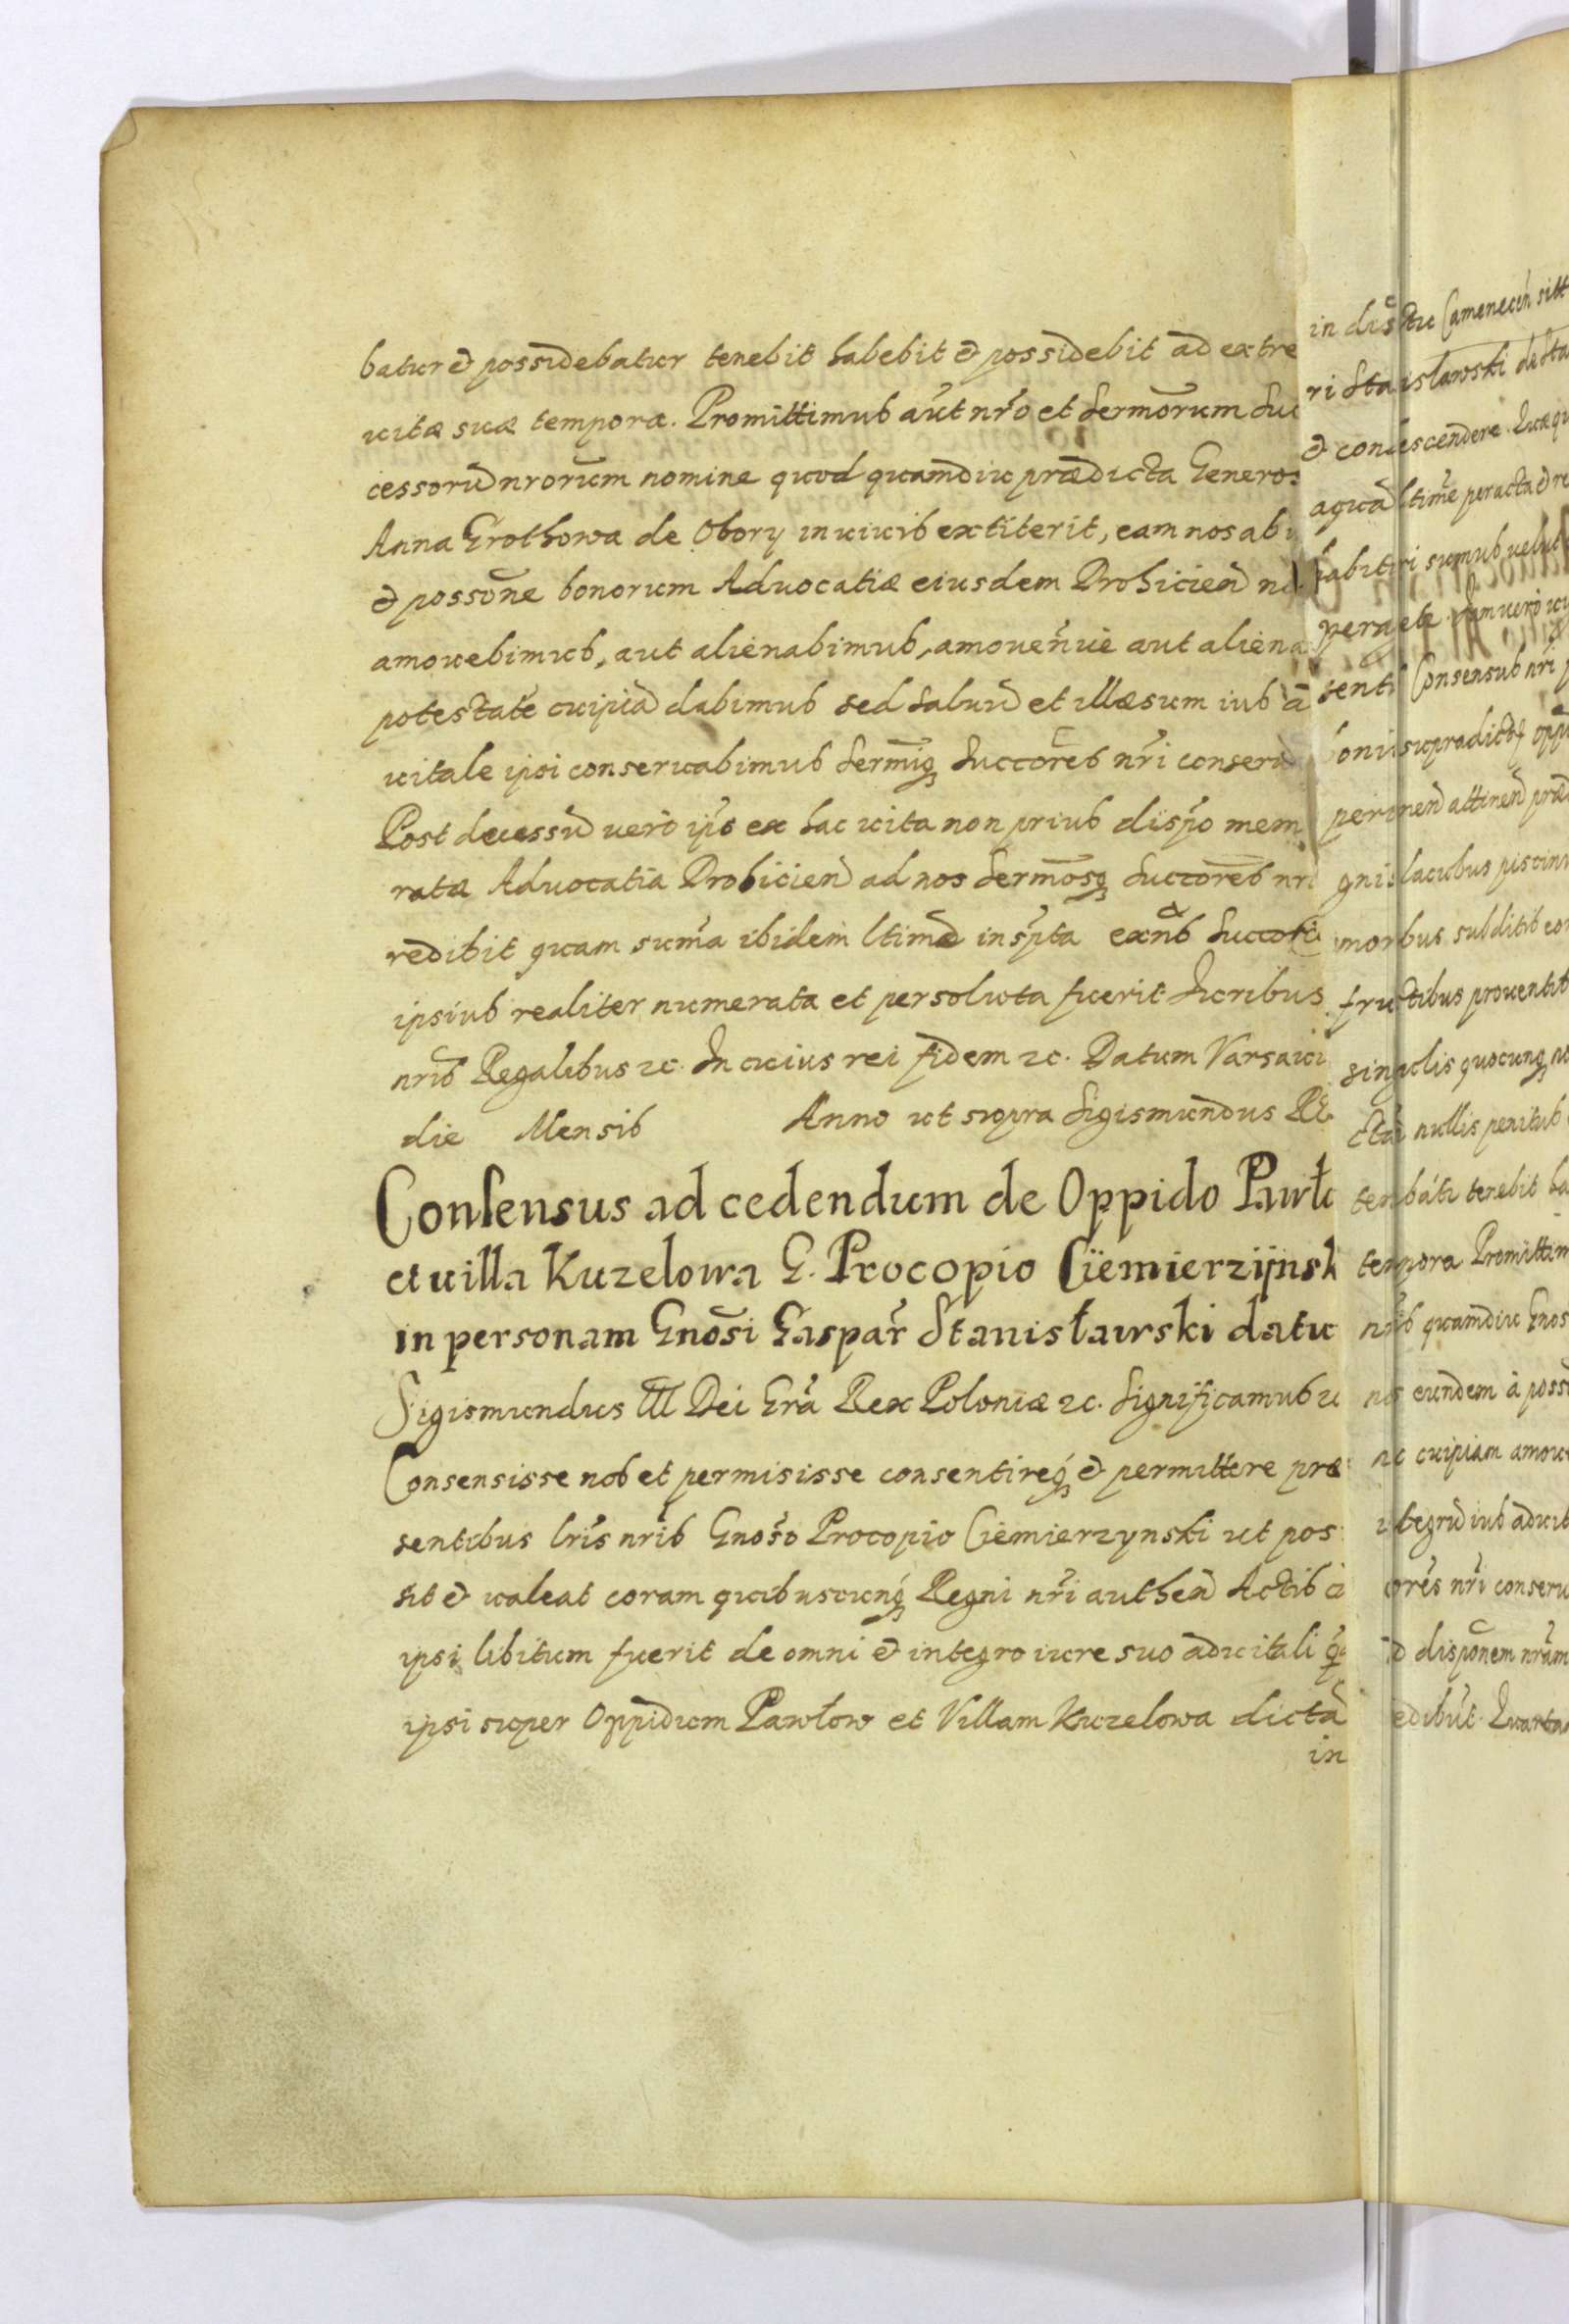 batur et possidebatur tenebit habebit et possidebit ad extre
uitæ suæ tempora. Promittimus aũt nr̃o et Sermõrum Suc
cessorũ nrorum nomine quod quamdiu prædicta Generos
Anna Grothowa de Obory in uiuis extiterit, eam nos ab u
et possõne bonorum Aduocatiæ eiusdem Drohicieñ nõ
amouebimus, aut alienabimus, amouen̄ue aut aliena
potestatẽ cuipiã dabimus sed saluũ et illæsum ius a
uitale ipsi conseruabimus Sermiq̃ Succores nr̃i conseru
Post decessũ uerò ip̃s ex hac uita non prius disp̃o mem
ratæ Aduocatiæ Drohiciеñ ad nos Sermosq̃ Succores nr̃
redibit quam sum̃a ibidem ltimẽ insp̃ta exnb Succori
ipsius realiter numerata et persoluta fuerit Iuribus
nris Regalibus ꝛc. In cuius rei fidem ꝛc. Datum Varsaui
die Mensis Anno ut supra Sigismundus Re
Consensus ad cedendum de Oppido Pawło
et uilla Kuzelowa G. Procopio Ciemierzÿnsk
in personam Gnõsi Gaspar̃ Stanisławski datu
Sigismundus III Dei Grã Rex Poloniæ ꝛc. Significamus u
Consensisse nos et permisisse consentireq́ et permittere præ
sentibus lr̃is nr̃is Gnoso Procopio Ciemierzynski ut pos
sit et ualeat coram quibuscunq́ Regni nr̃i autheñ Actis c
ipsi libitum fuerit de omni et integro iure suo aduitali q̃
ipsi super Oppidum Pawłow et Villam Kuzelowa dictã
in
in dis̃tu Camenecen̄ sitt
ri Stanislawski de Sta
et condescendere. Quæqu
agua ltime peracta et re
habituri sumus uelut
peragetr. Iam uerò ui
senti Consensus nr̃i p
bonis supradictꝭ opp
pertinen̄ attinen̄ præd
gnis lacubus piscinis
moribus subditis eor
fructibus prouentib
singulis quocunq̃ no
nullis penitus
tenebit ha
tempora Promittim
nr̃is quamdiu Gnos
nos eundem à posso
nec cuipiam amoue
integrũ ius aduit
cores nr̃i conseru
ad disponem nr̃am
redibut. Quarta